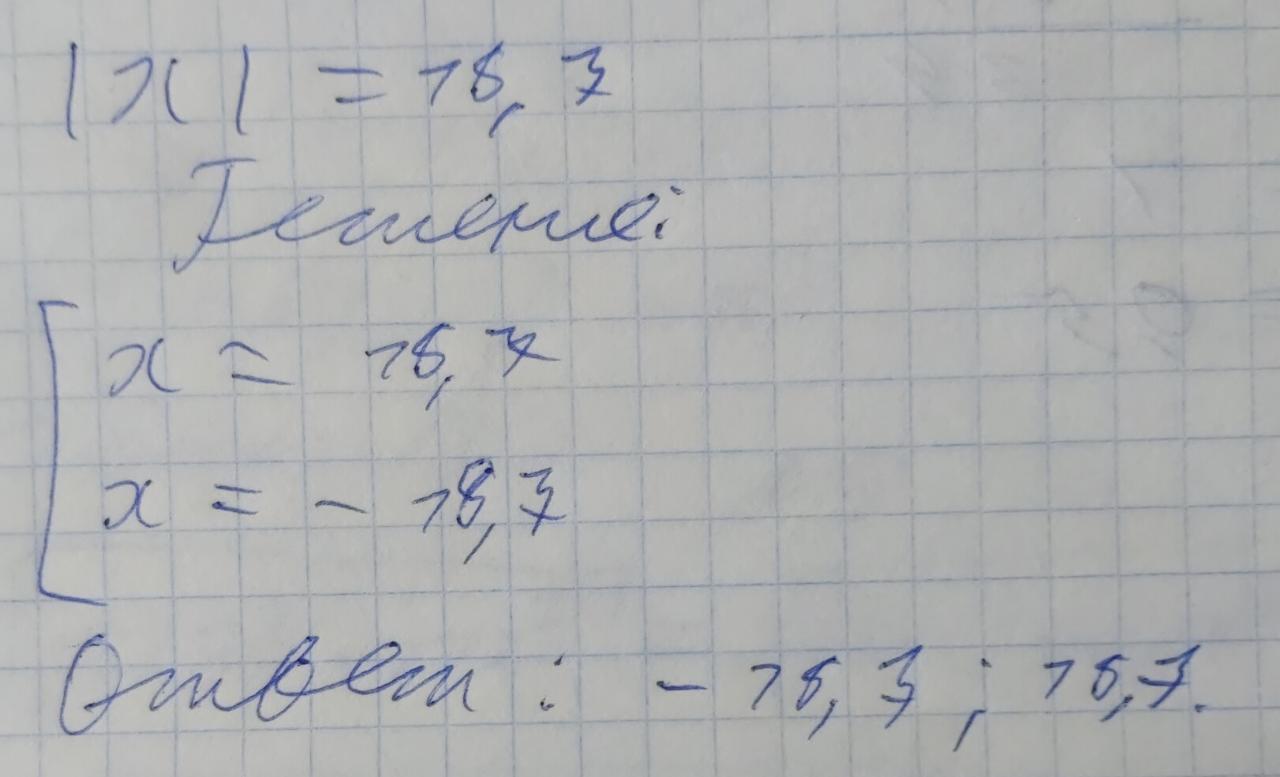 |x| = 18,7
Решение:
x = 18,7
x = - 18,7
Ответ: - 18,7; 18,7.